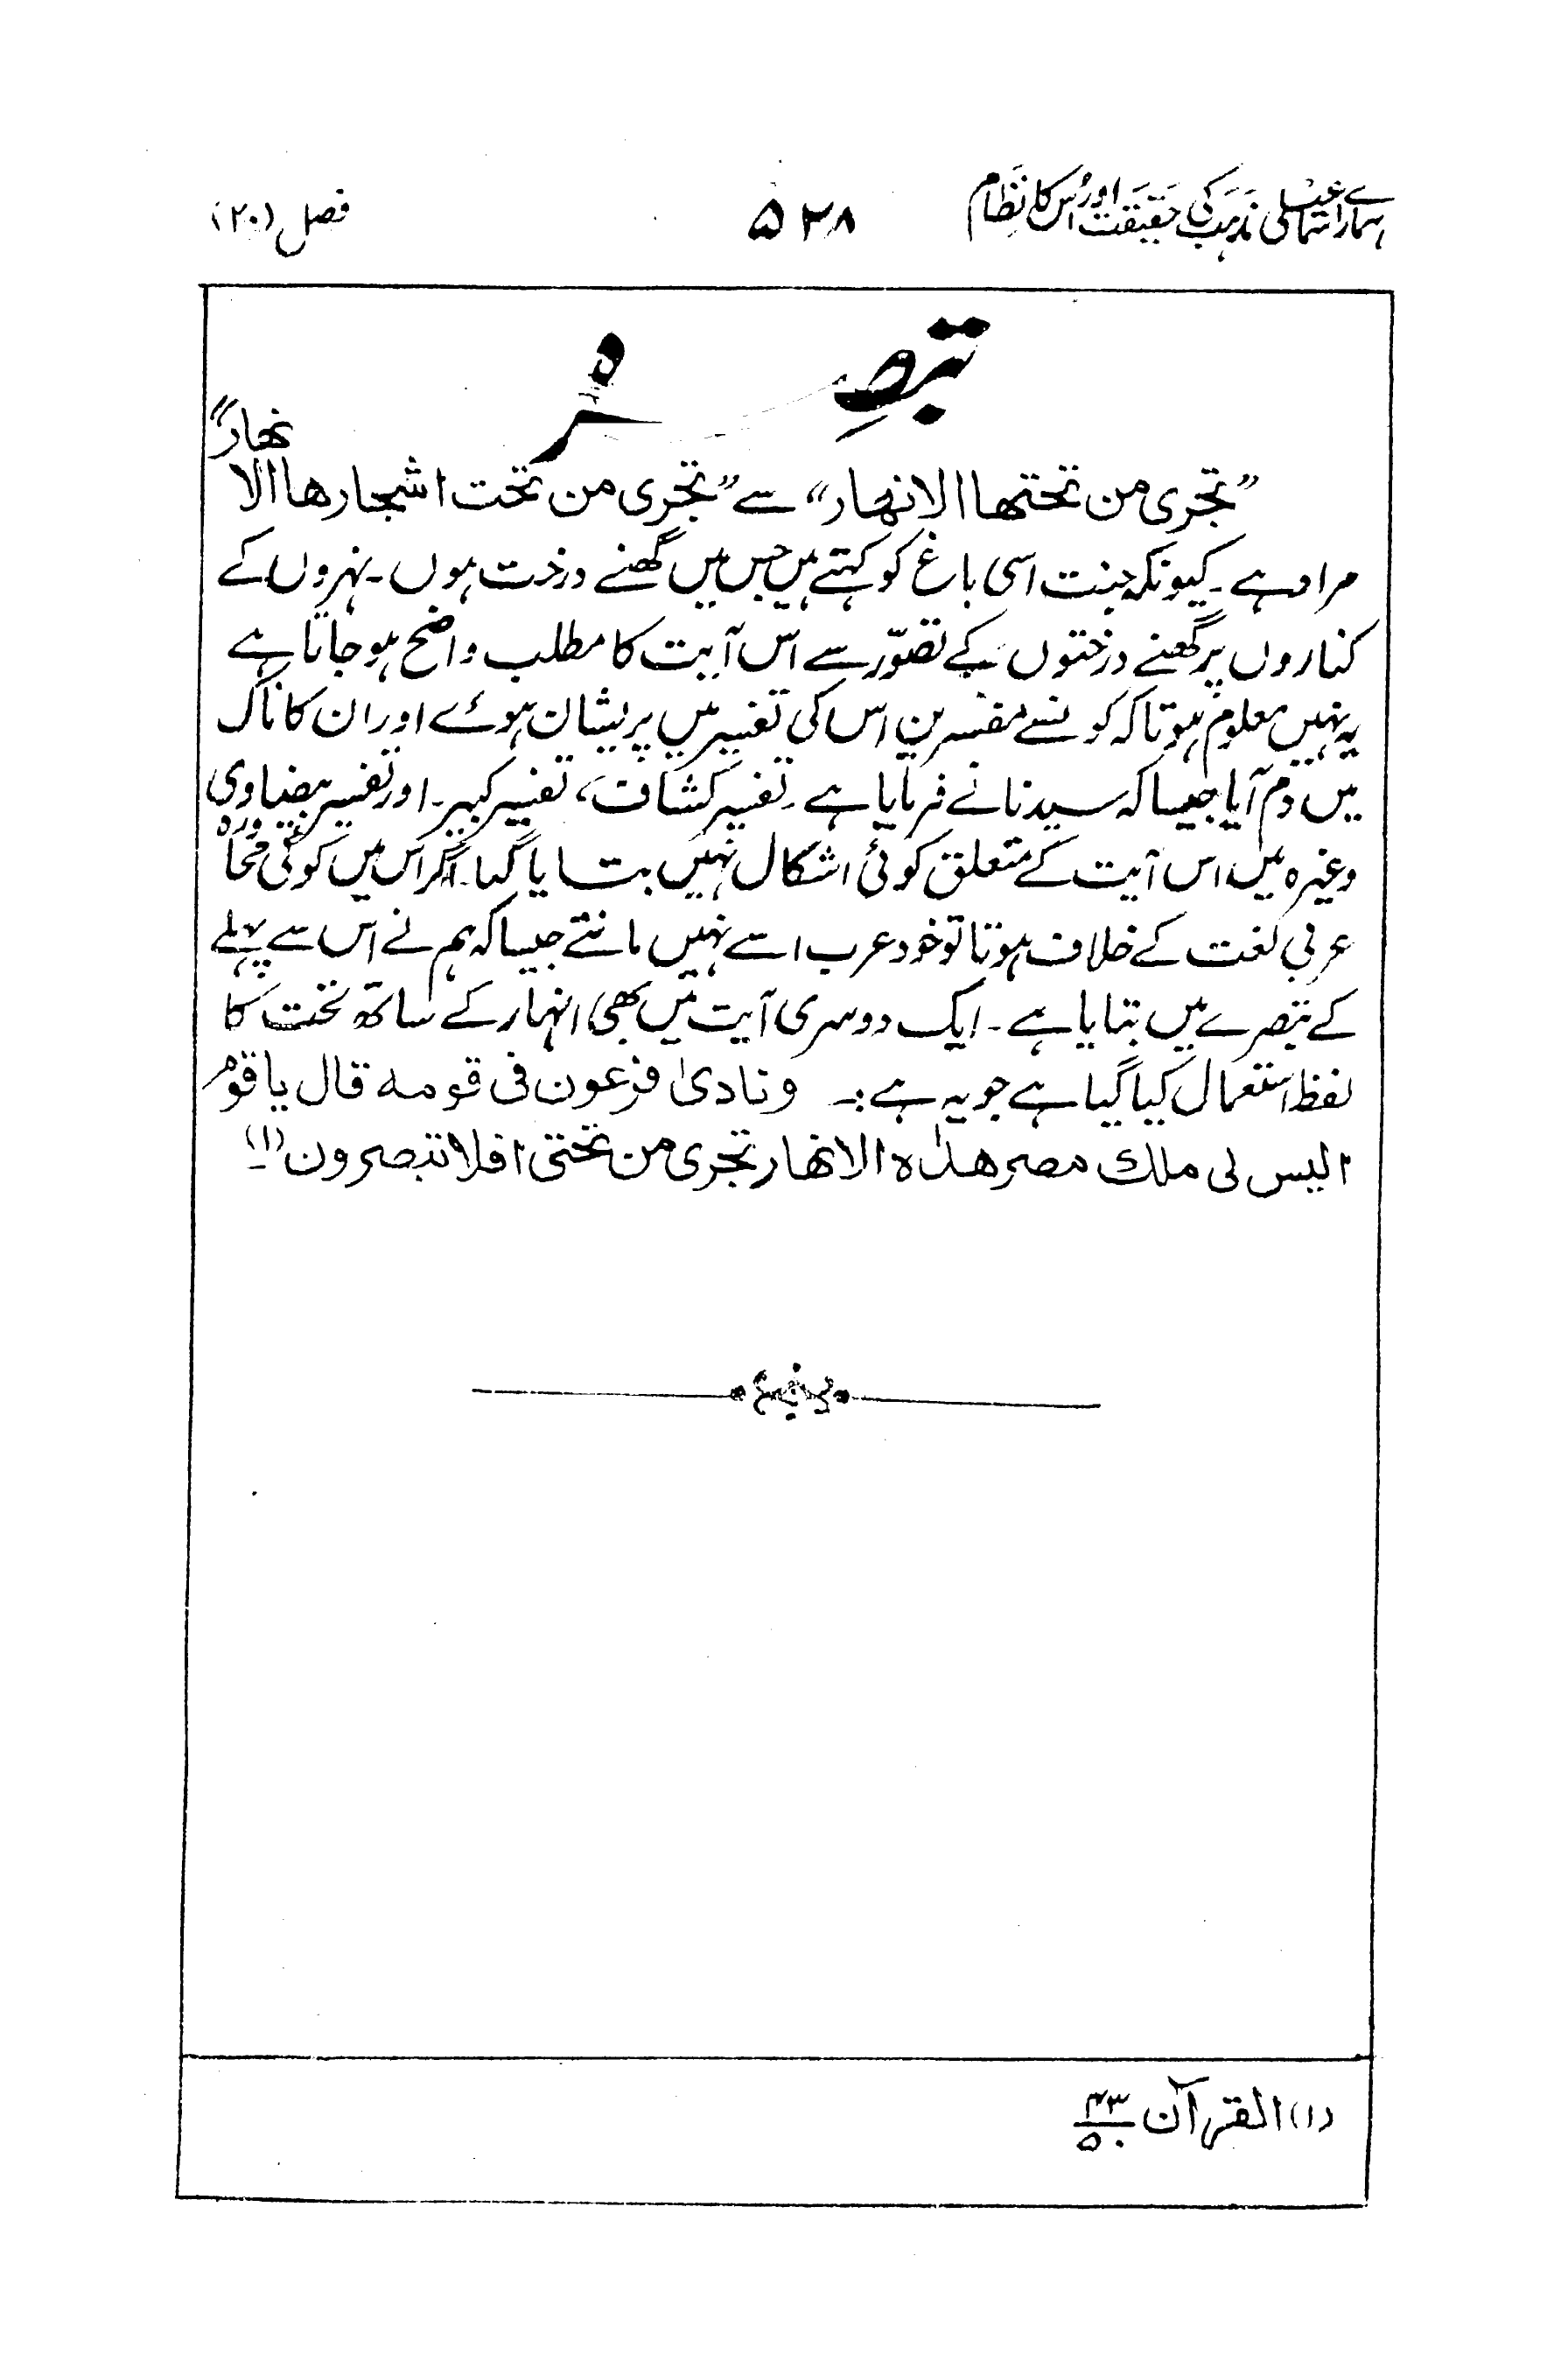 ہمارے اسماعیلی مذہب کی حقیقت اور اس کا نظام
۵۲۸
فصل (۲۰)
تبصرہ
”تجری من تحتها الانهار“ سے ”تجری من تحت اشجارها الانهار“
مراد ہے۔ کیونکہ جنت اسی باغ کو کہتے ہیں جس میں گھنے درخت ہوں۔ نہروں کے
کناروں پر گھنے درختوں کے تصوّر سے اس آیت کا مطلب واضح ہو جاتا ہے
یہ نہیں معلوم ہوتا کہ کونسے مفسرین اس کی تفسیر میں پریشان ہوئے اور ان کا ناک
میں دم آیا جیسا کہ سیدنا نے فرمایا ہے۔ تفسیر کشاف، تفسیر کبیر۔ اور تفسیر بیضاوی
وغیرہ میں اس آیت کے متعلق کوئی اشکال نہیں بتایا گیا۔ اگر اس میں کوئی محاورہ
عربی لغت کے خلاف ہوتا تو خود عرب اسے نہیں مانتے جیسا کہ ہم نے اس سے پہلے
کے تبصرے میں بتایا ہے۔ ایک دوسری آیت میں بھی انہار کے ساتھ تحت کا
لفظ استعمال کیا گیا ہے جو یہ ہے :۔ ونادیٰ فرعون فی قومه قال یاقوم
الیس لی ملك مصر هٰذه الانهار تجری من تحتی افلا تبصرون (۱)۔
(۱) القرآن ۴۳/۵۰